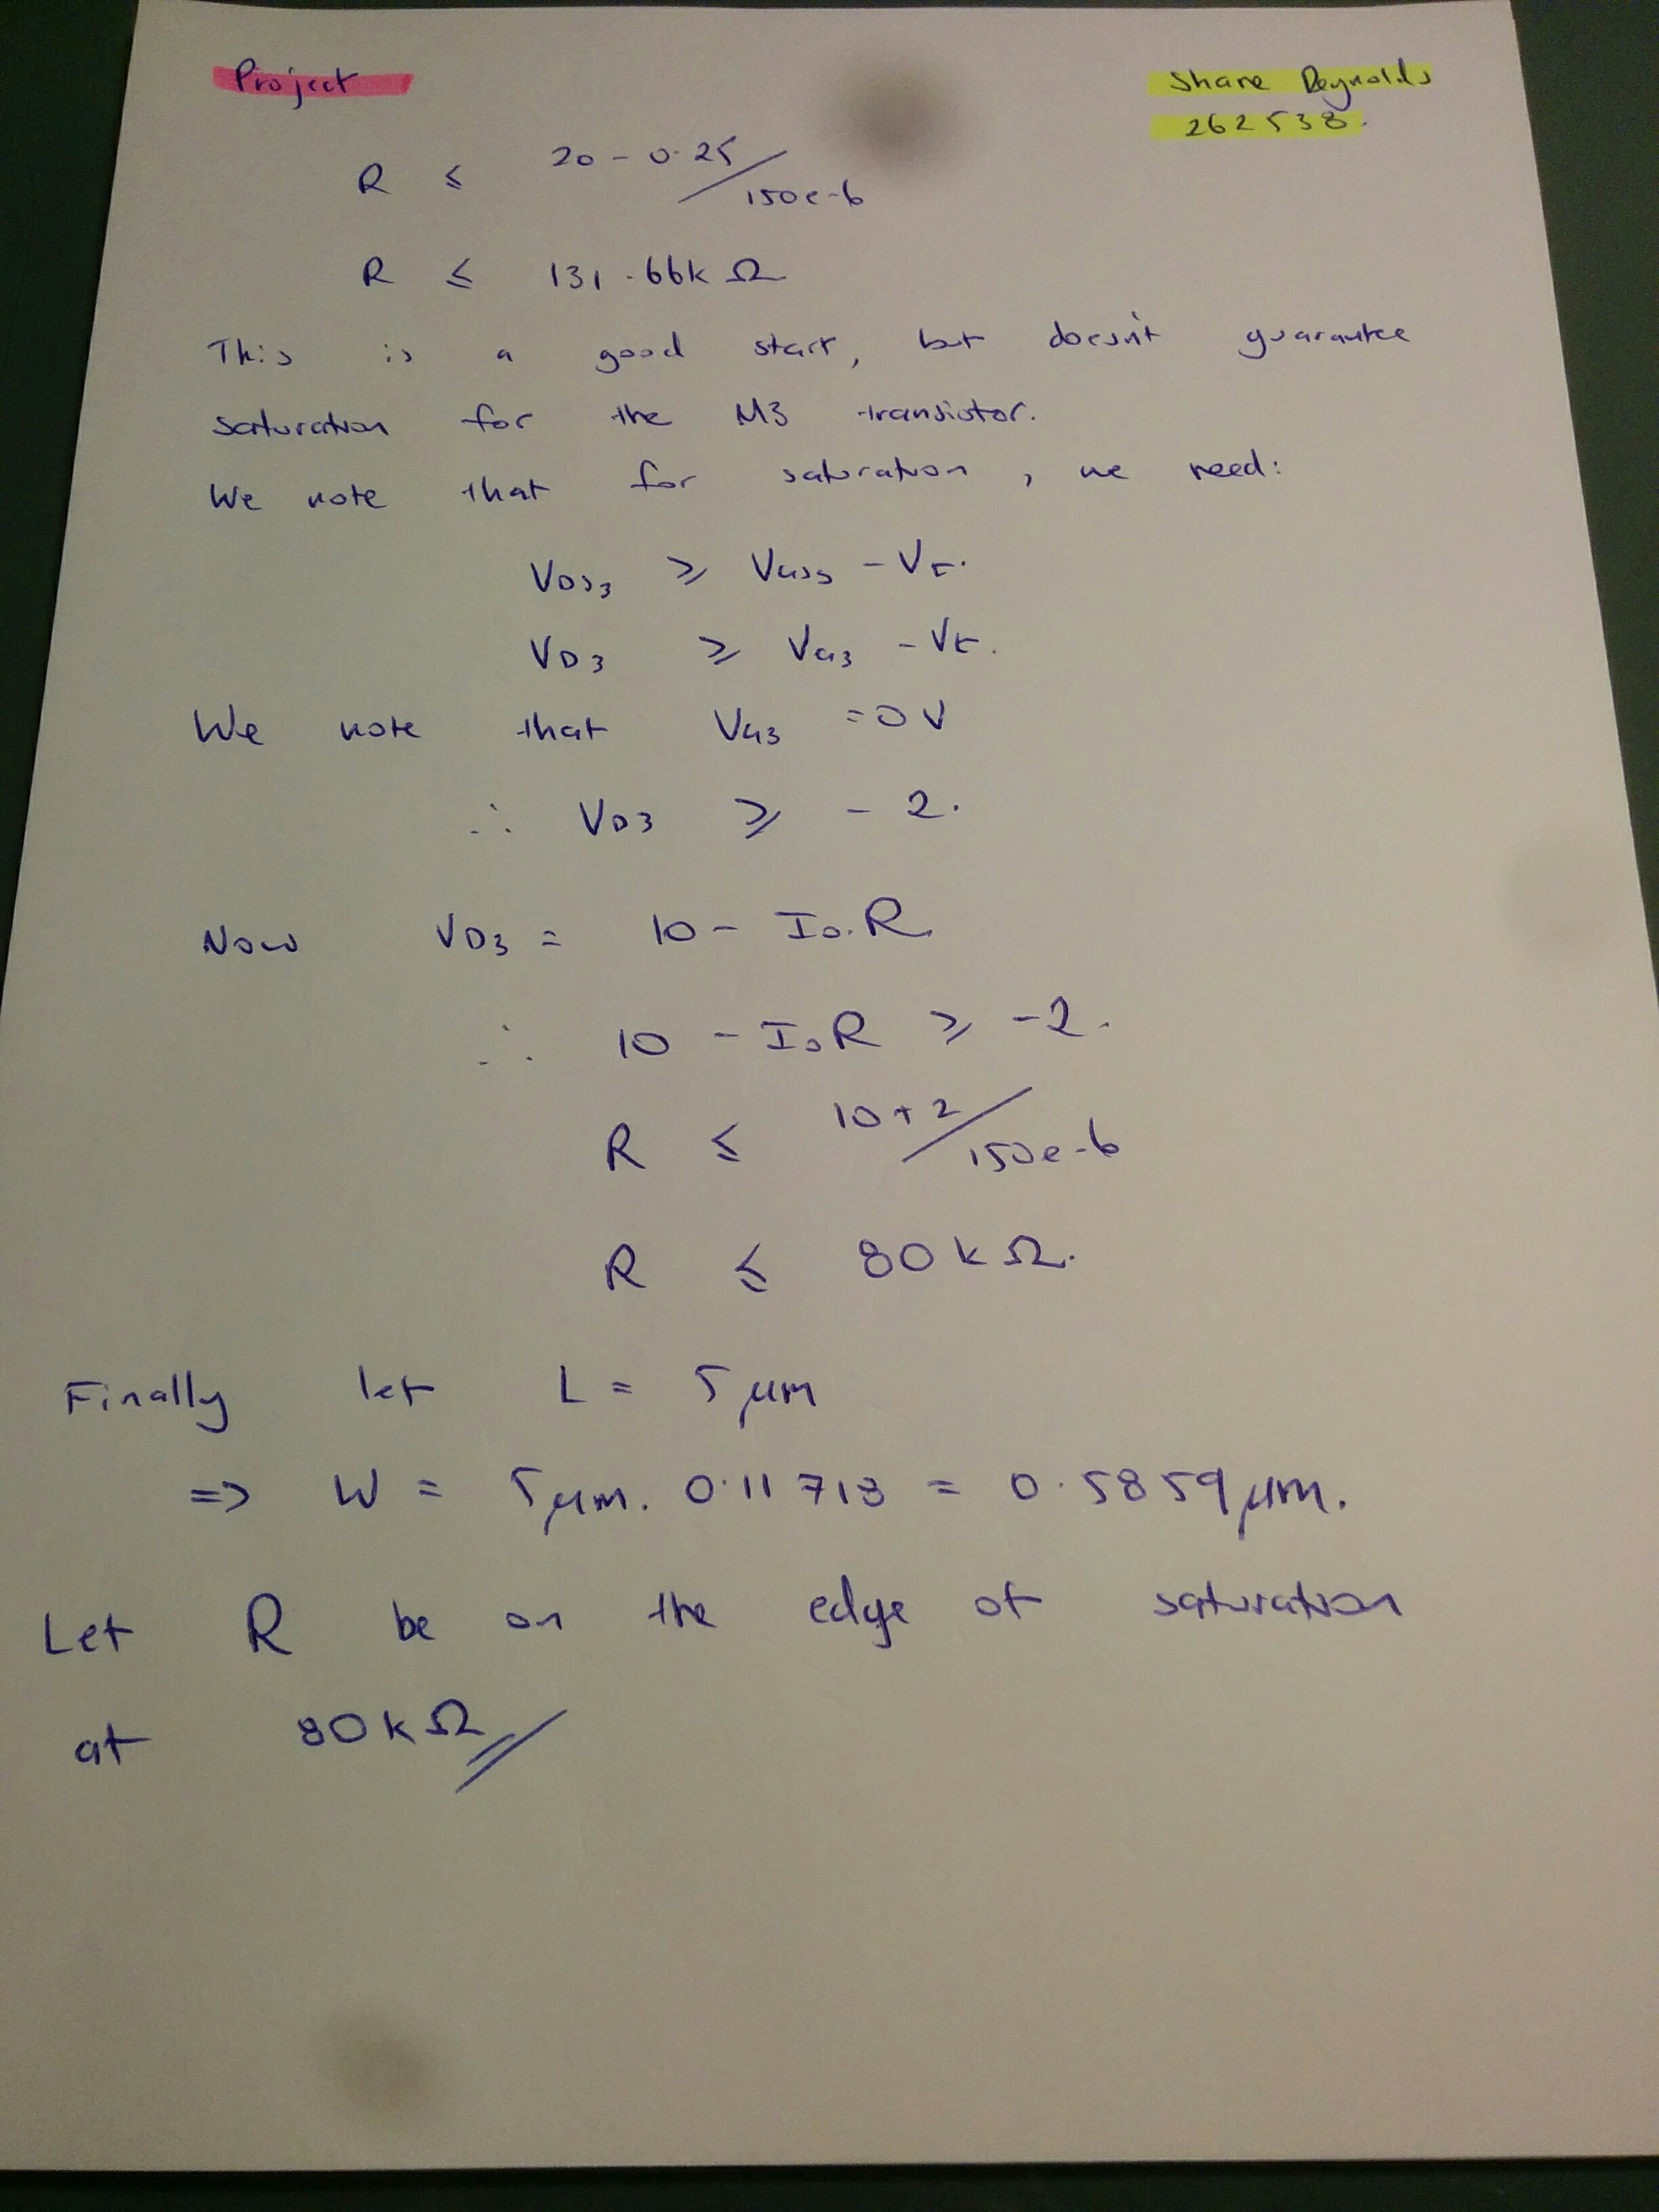 Project
Shane Reynolds
262538.
R ≤ 20 - 0.25 / 150e-6
R ≤ 131.66k Ω
This is a good start, but doesn't guarantee
saturation for the M3 transistor.
We note that for saturation, we need:
VDS3 ≥ VGS3 - Vt.
VD3 ≥ VG3 - Vt.
We note that VG3 = 0V
∴ VD3 ≥ - 2.
Now VD3 = 10 - ID.R
∴ 10 - IDR ≥ -2.
R ≤ 10+2 / 150e-6
R ≤ 80kΩ.
Finally let L = 5μm
=> W = 5μm. 0.11718 = 0.5859μm.
Let R be on the edge of saturation
at 80kΩ//